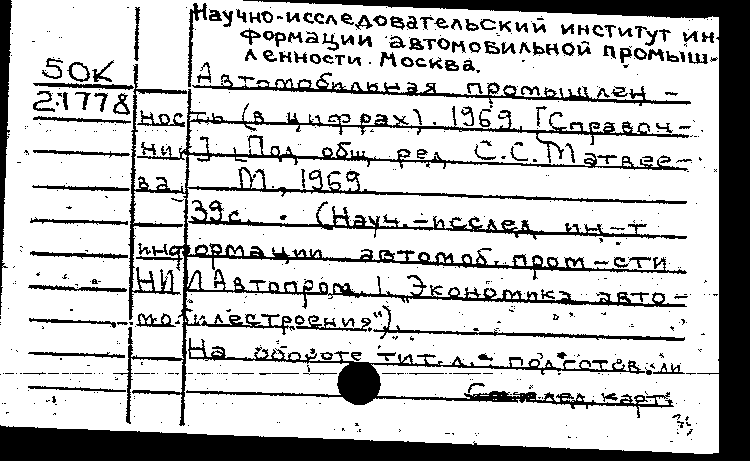 Научно-исследовательский институт ин-
формации автомобильной промыш-
ленности. Москва.
50К
21778
Автомобильная промышлен-
ность (в цифрах). 1969. [Справоч-
ник]. Под общ. ред. С.С. Матвее-
ва. М., 1969.
39с. (Науч.-исслед. ин-т
информации автомоб. пром-сти
НИИАвтопром. "Экономика авто-
мобилестроения").
На обороте тит. л.: подготовили
След. карт.